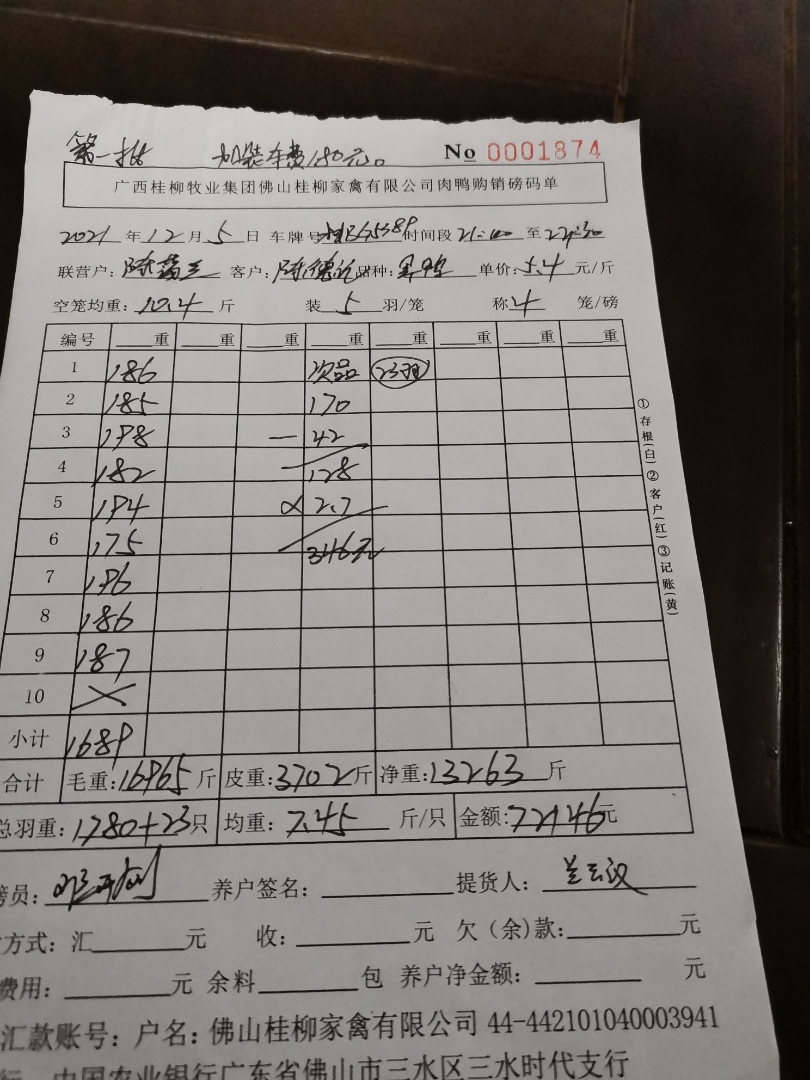 第一批 加装车费180元。 No 0001874
广西桂柳牧业集团佛山桂柳家禽有限公司肉鸭购销磅码单
2021 年 12 月 5 日 车牌号: 时间段 至
联营户: 客户: 陈德 品种: 单价: 5.4 元/斤
空笼均重: 10.4 斤 装 5 羽/笼 称 4 笼/磅
编号 重 重 重 重 重 重 重
1 186 次品 23羽
2 185 170
3 198 — 42
4 182 128
5 194 2.7
6 175 346元
7 196
8 186
9 187
10 ×
小计 1689
合计 毛重: 16965 斤 皮重: 3702 斤 净重: 13263 斤
总羽重: 1780+23 只 均重: 7.45 斤/只 金额: 72146 元
磅员: 养户签名: 提货人:
方式: 汇 元 收: 元 欠(余)款: 元
费用: 元 余料 包 养户净金额: 元
汇款账号: 户名: 佛山桂柳家禽有限公司 44-442101040003941
行 中国农业银行广东省佛山市三水区三水时代支行
①存根(白)②客户(红)③记账(黄)